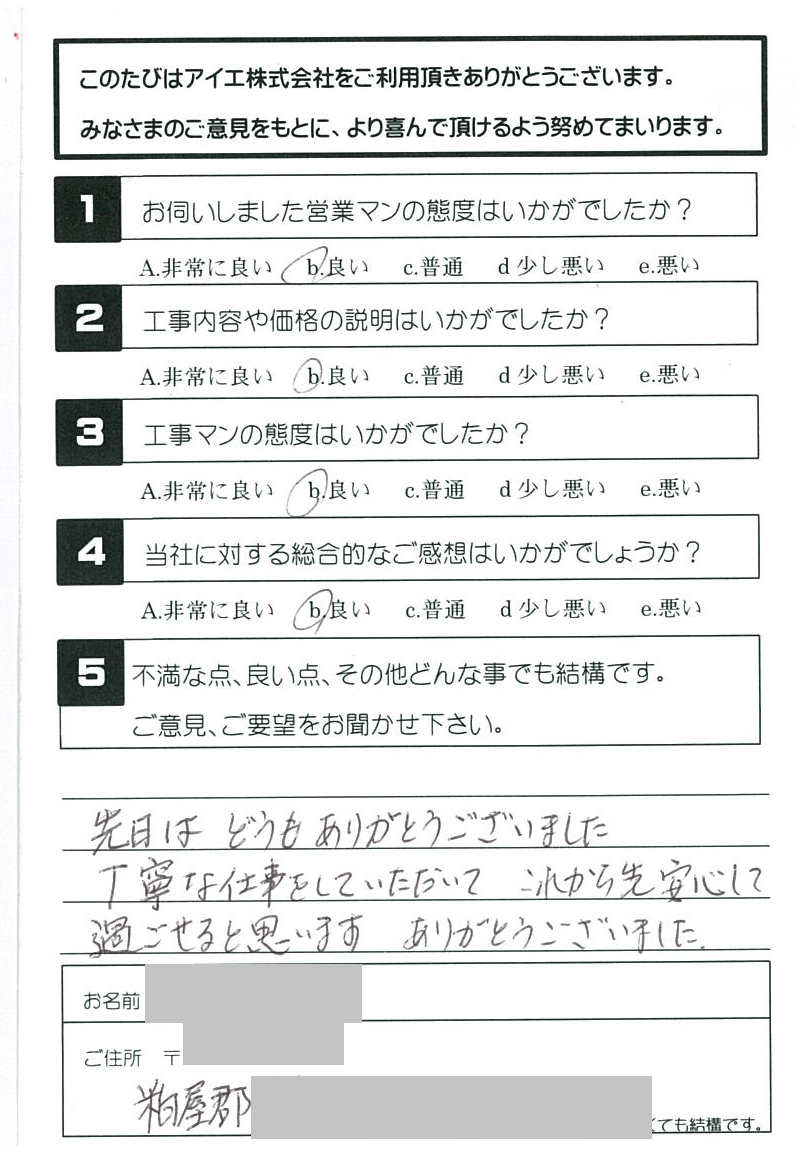 このたびはアイエ株式会社をご利用頂きありがとうございます。
みなさまのご意見をもとに、より喜んで頂けるよう努めてまいります。
1 お伺いしました営業マンの態度はいかがでしたか？
A.非常に良い b.良い c.普通 d少し悪い e.悪い
2 工事内容や価格の説明はいかがでしたか？
A.非常に良い b.良い c.普通 d少し悪い e.悪い
3 工事マンの態度はいかがでしたか？
A.非常に良い b.良い c.普通 d少し悪い e.悪い
4 当社に対する総合的なご感想はいかがでしょうか？
A.非常に良い b.良い c.普通 d少し悪い e.悪い
5 不満な点、良い点、その他どんな事でも結構です。
ご意見、ご要望をお聞かせ下さい。
先日は どうもありがとうございました
丁寧な仕事をしていただいて これから先安心して
過ごせると思います ありがとうございました.
お名前
ご住所 〒
粕屋郡
くても結構です。